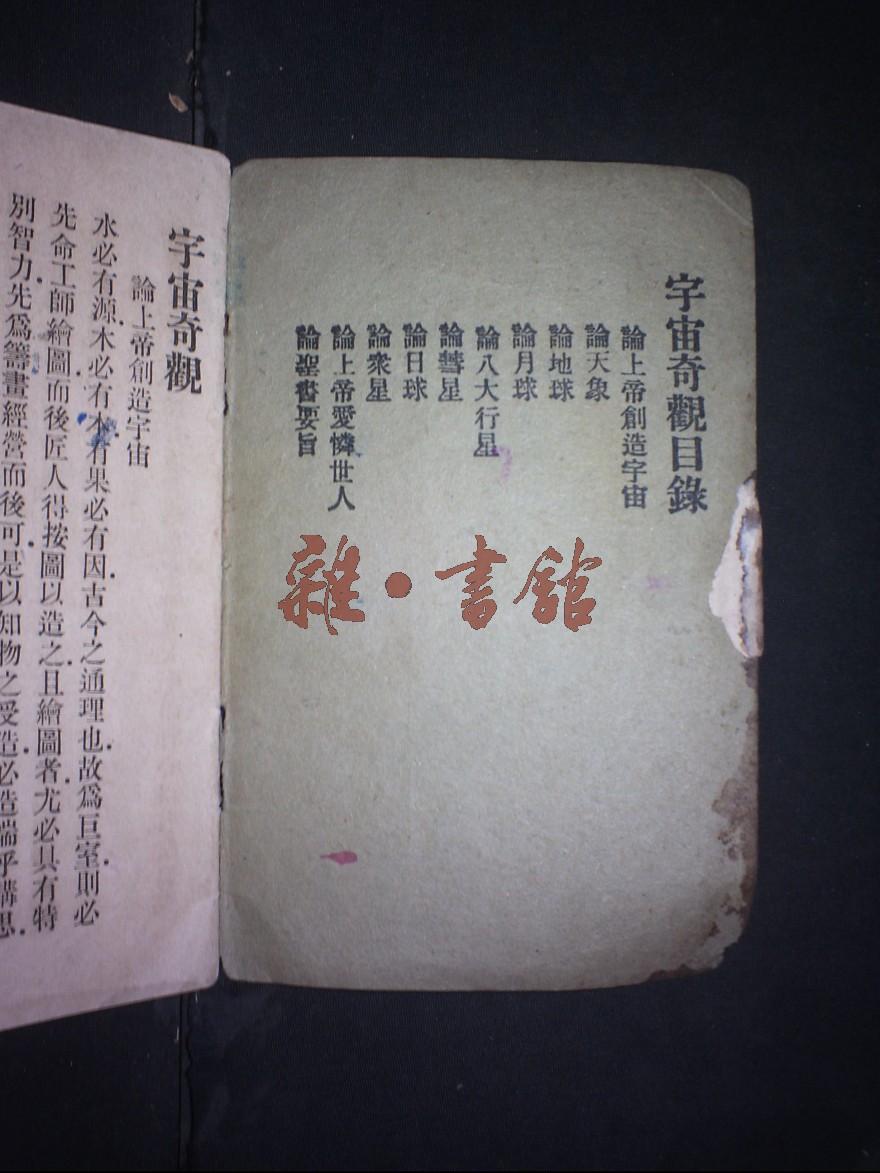 宇宙奇觀目錄
論上帝創造宇宙
論天象
論地球
論月球
論八大行星
論彗星
論日球
論衆星
論上帝愛憐世人
論聖書要旨
雜·書館
宇宙奇觀
論上帝創造宇宙
水必有源.木必有本.有果必有因.古今之通理也.故爲巨室.則必
先命工師繪圖.而後匠人得按圖以造之.且繪圖者.尤必具有特
別智力.先爲籌畫經營而後可.是以知物之受造.必造端乎搆思.